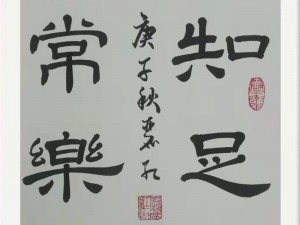 知足
常樂
庚子秋